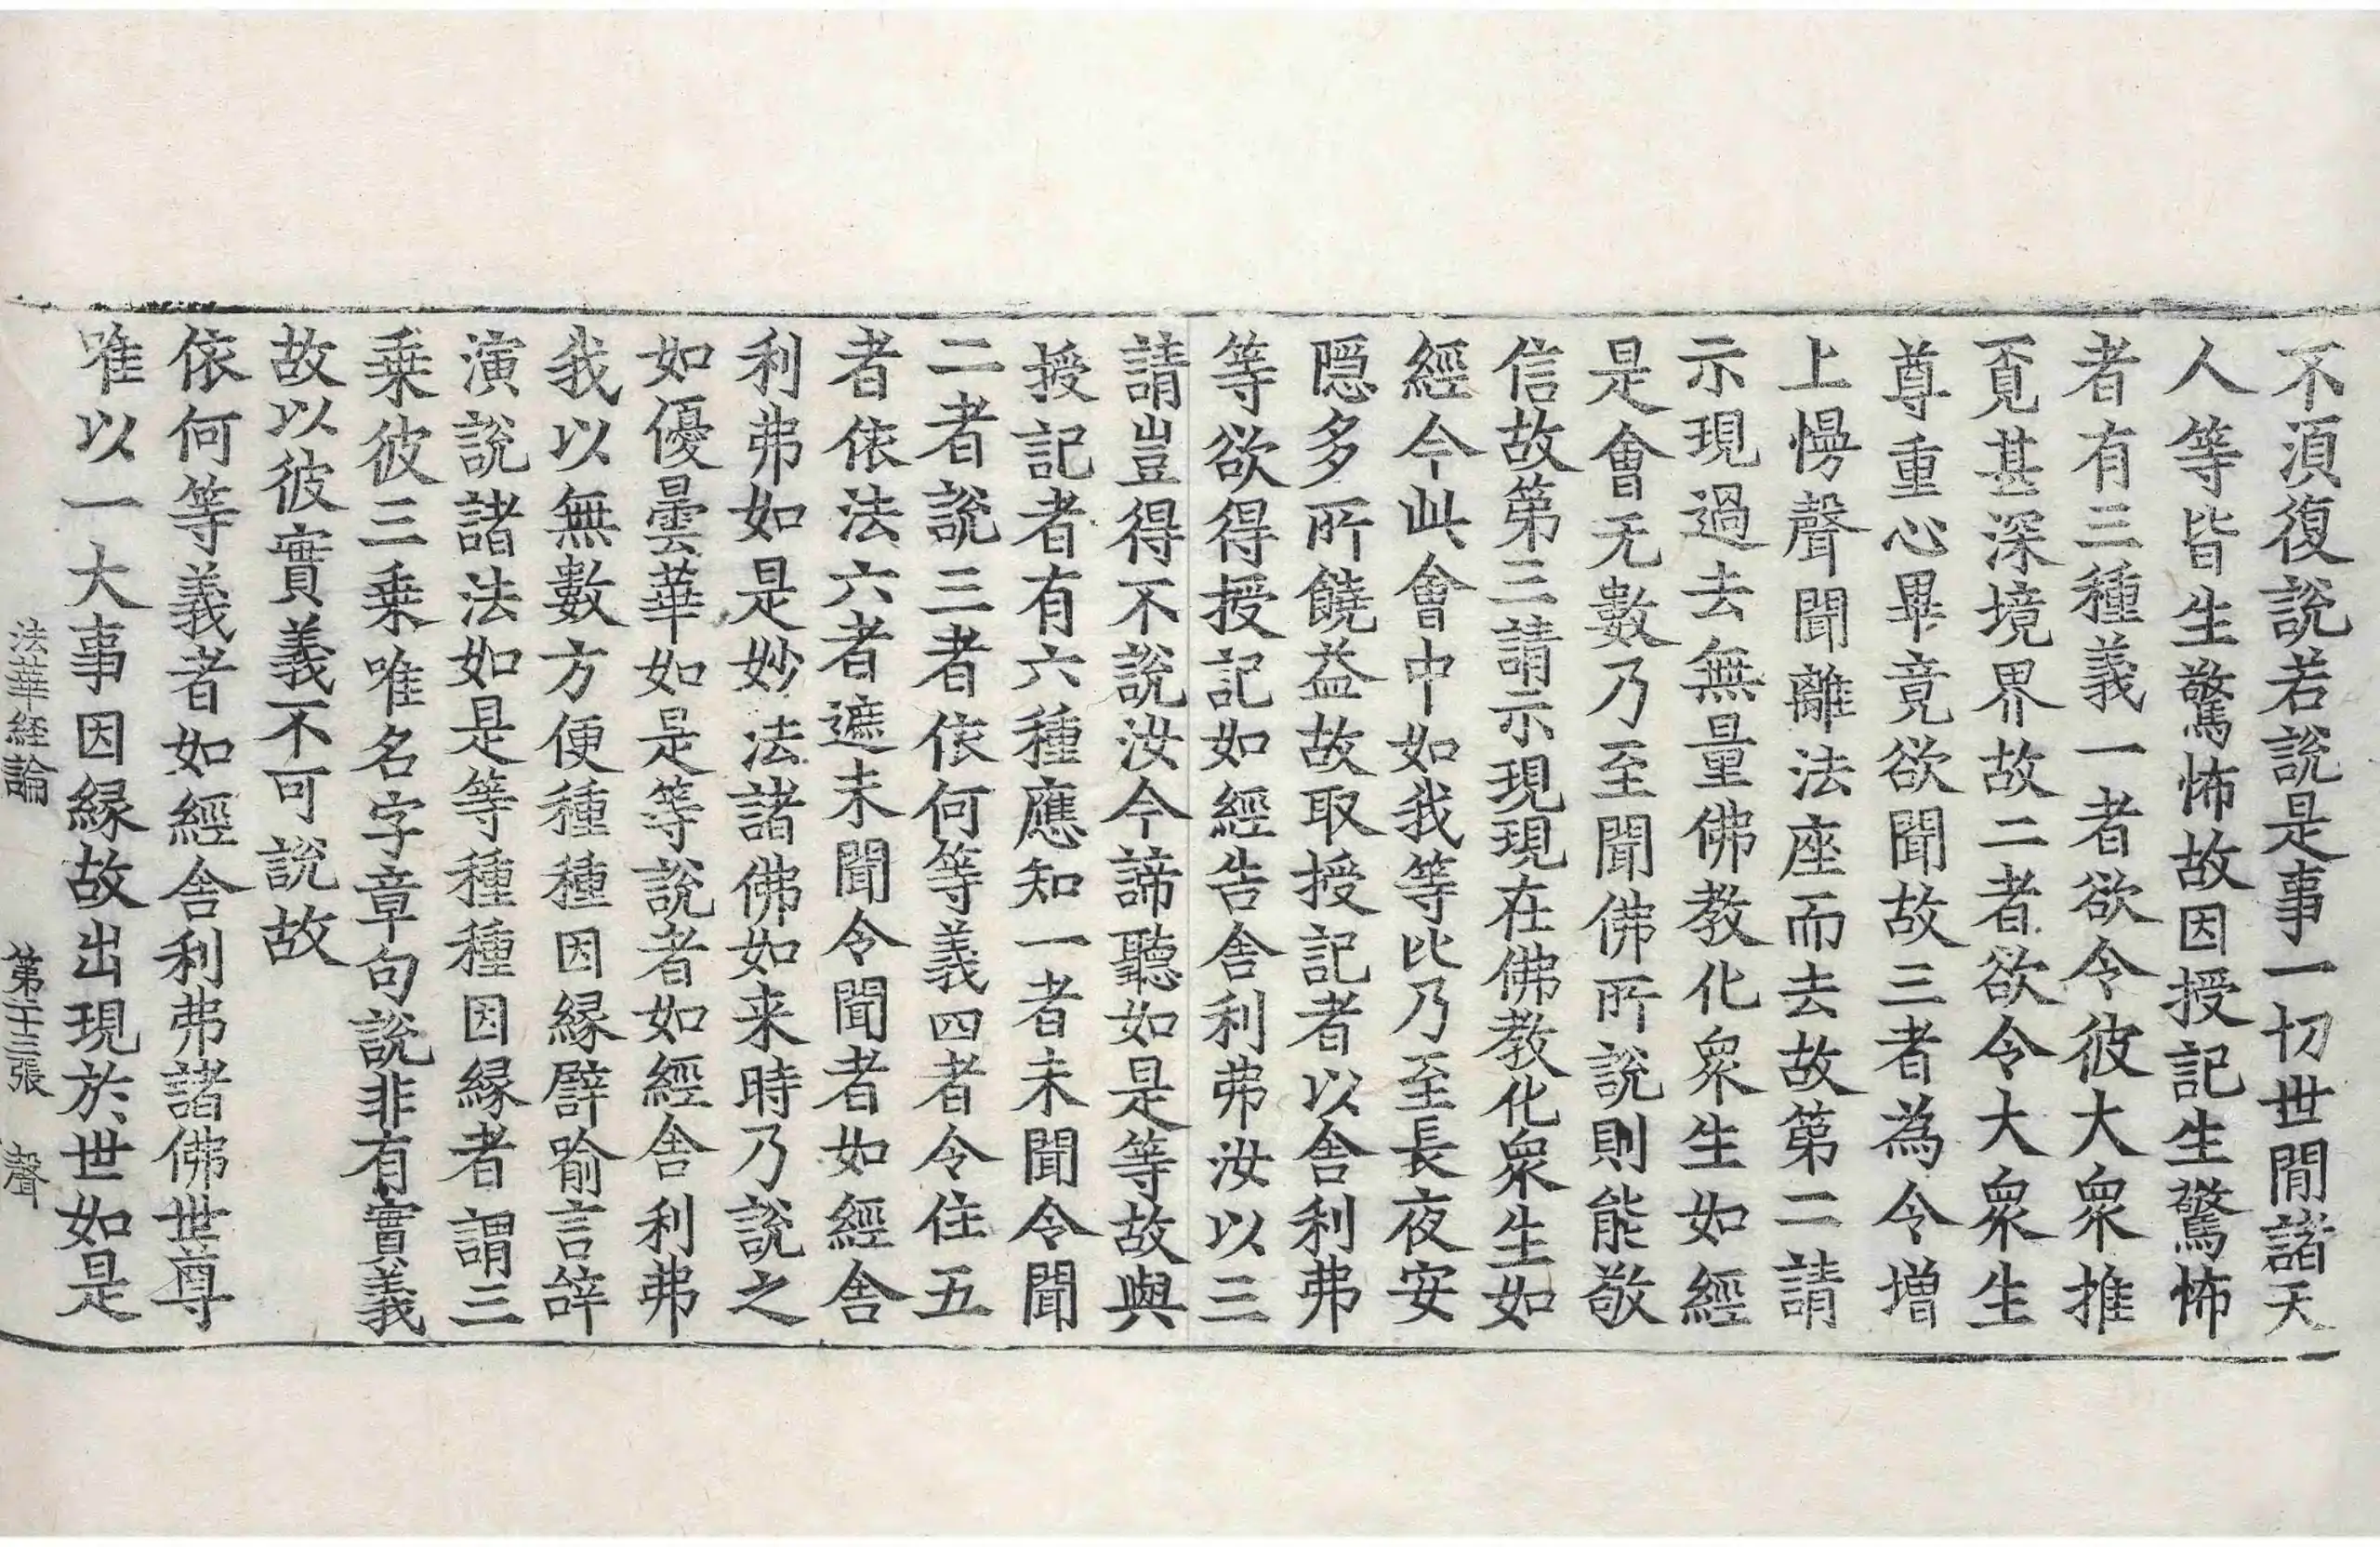 不湏復說若說是事一切世閒諸天
人等皆生驚怖故因授記生驚怖
者有三種義一者欲令彼大衆推
覔甚深境界故二者欲令大衆生
尊重心畢竟欲聞故三者為令增
上慢聲聞離法座而去故第二請
示現過去無量佛教化衆生如經
是會无數乃至聞佛所說則能敬
信故第三請示現現在佛教化衆生如
經今此會中如我等比乃至長夜安
隱多所饒益故取授記者以舍利弗
等欲得授記如經告舍利弗汝以三
請豈得不說汝今諦聽如是等故與
授記者有六種應知一者未聞令聞
二者說三者依何等義四者令住五
者依法六者遮未聞令聞者如經舍
利弗如是妙法諸佛如来時乃說之
如優曇華如是等說者如經舍利弗
我以無數方便種種因緣譬喻言辭
演說諸法如是等種種因緣者謂三
乗彼三乗唯名字章句說非有實義
故以彼實義不可說故
依何等義者如經舍利弗諸佛世尊
唯以一大事因緣故出現於世如是
法華経論 第二十三張 聲